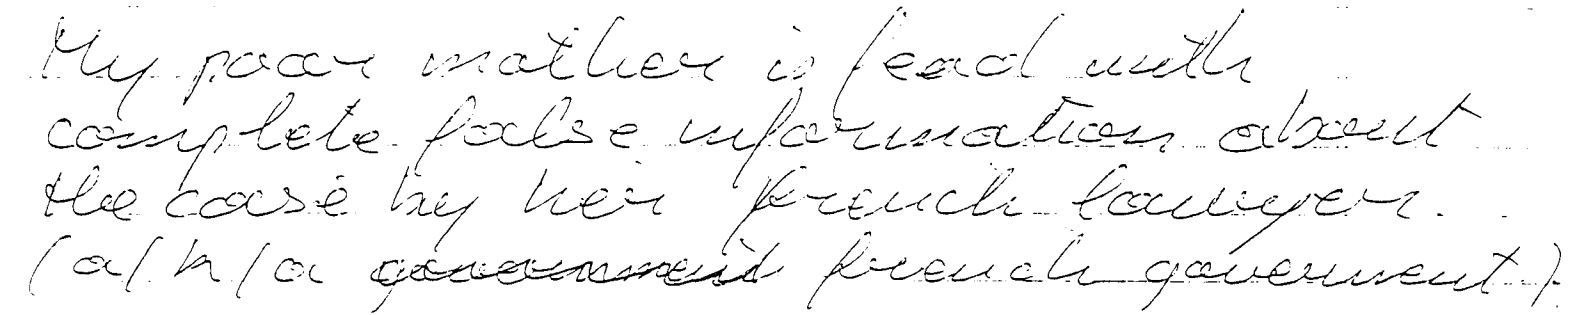 My poor mother is fead with
complete false information about
the case by her french lawyer.
(a/k/a government french goverment).